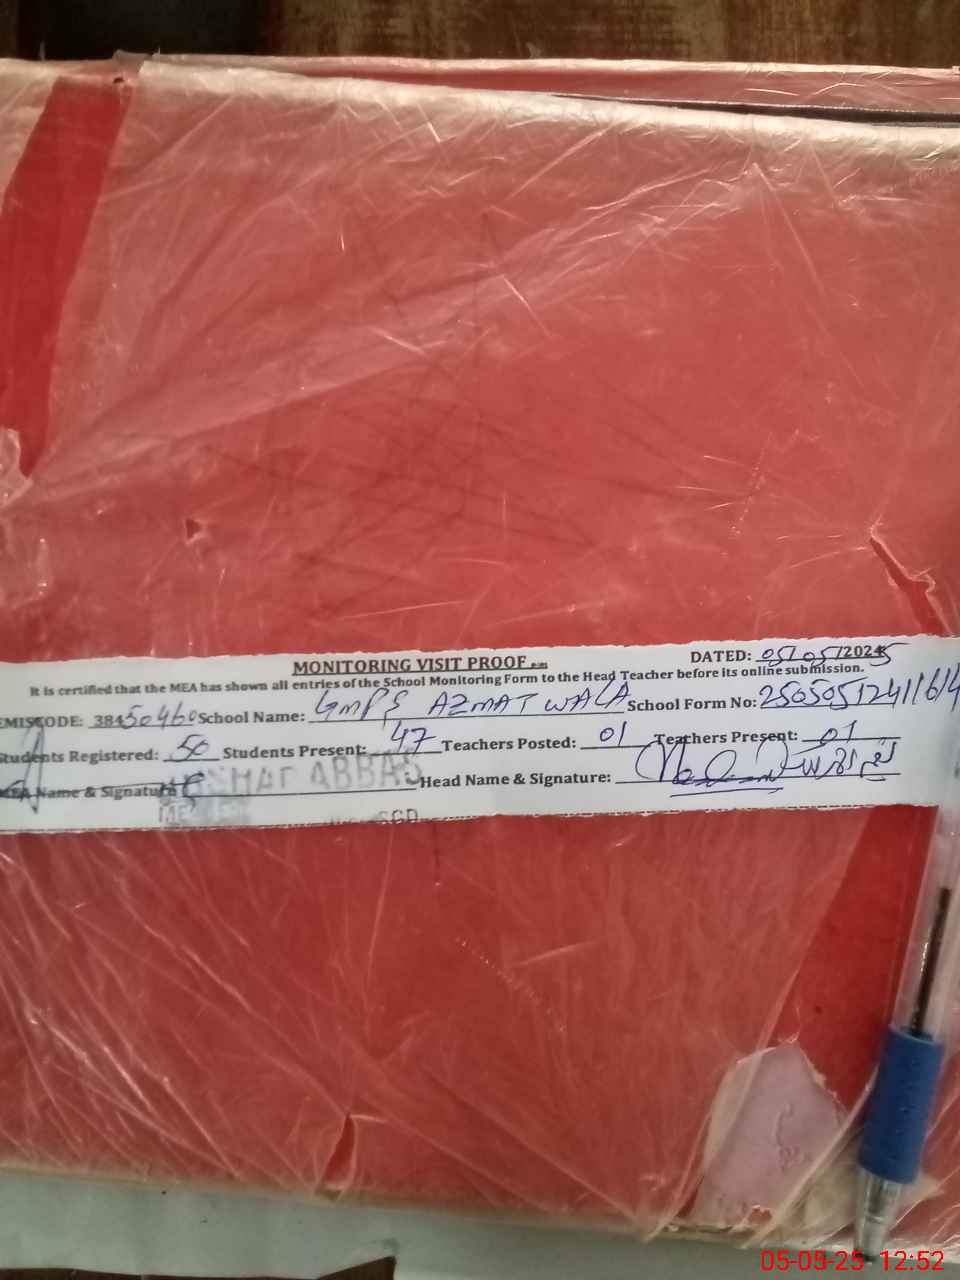 MONITORING VISIT PROOF
DATED: 05/05/2025
It is certified that the MEA has shown all entries of the School Monitoring Form to the Head Teacher before its online submission.
EMISCODE: 38450460 School Name: GMPS AZMAT WALA School Form No: 25050512411614
Students Registered: 50 Students Present: 47 Teachers Posted: 01 Teachers Present: 01
MEA Name & Signature Head Name & Signature:
SHMAT ABBAS
SGD
05-05-25 12:52